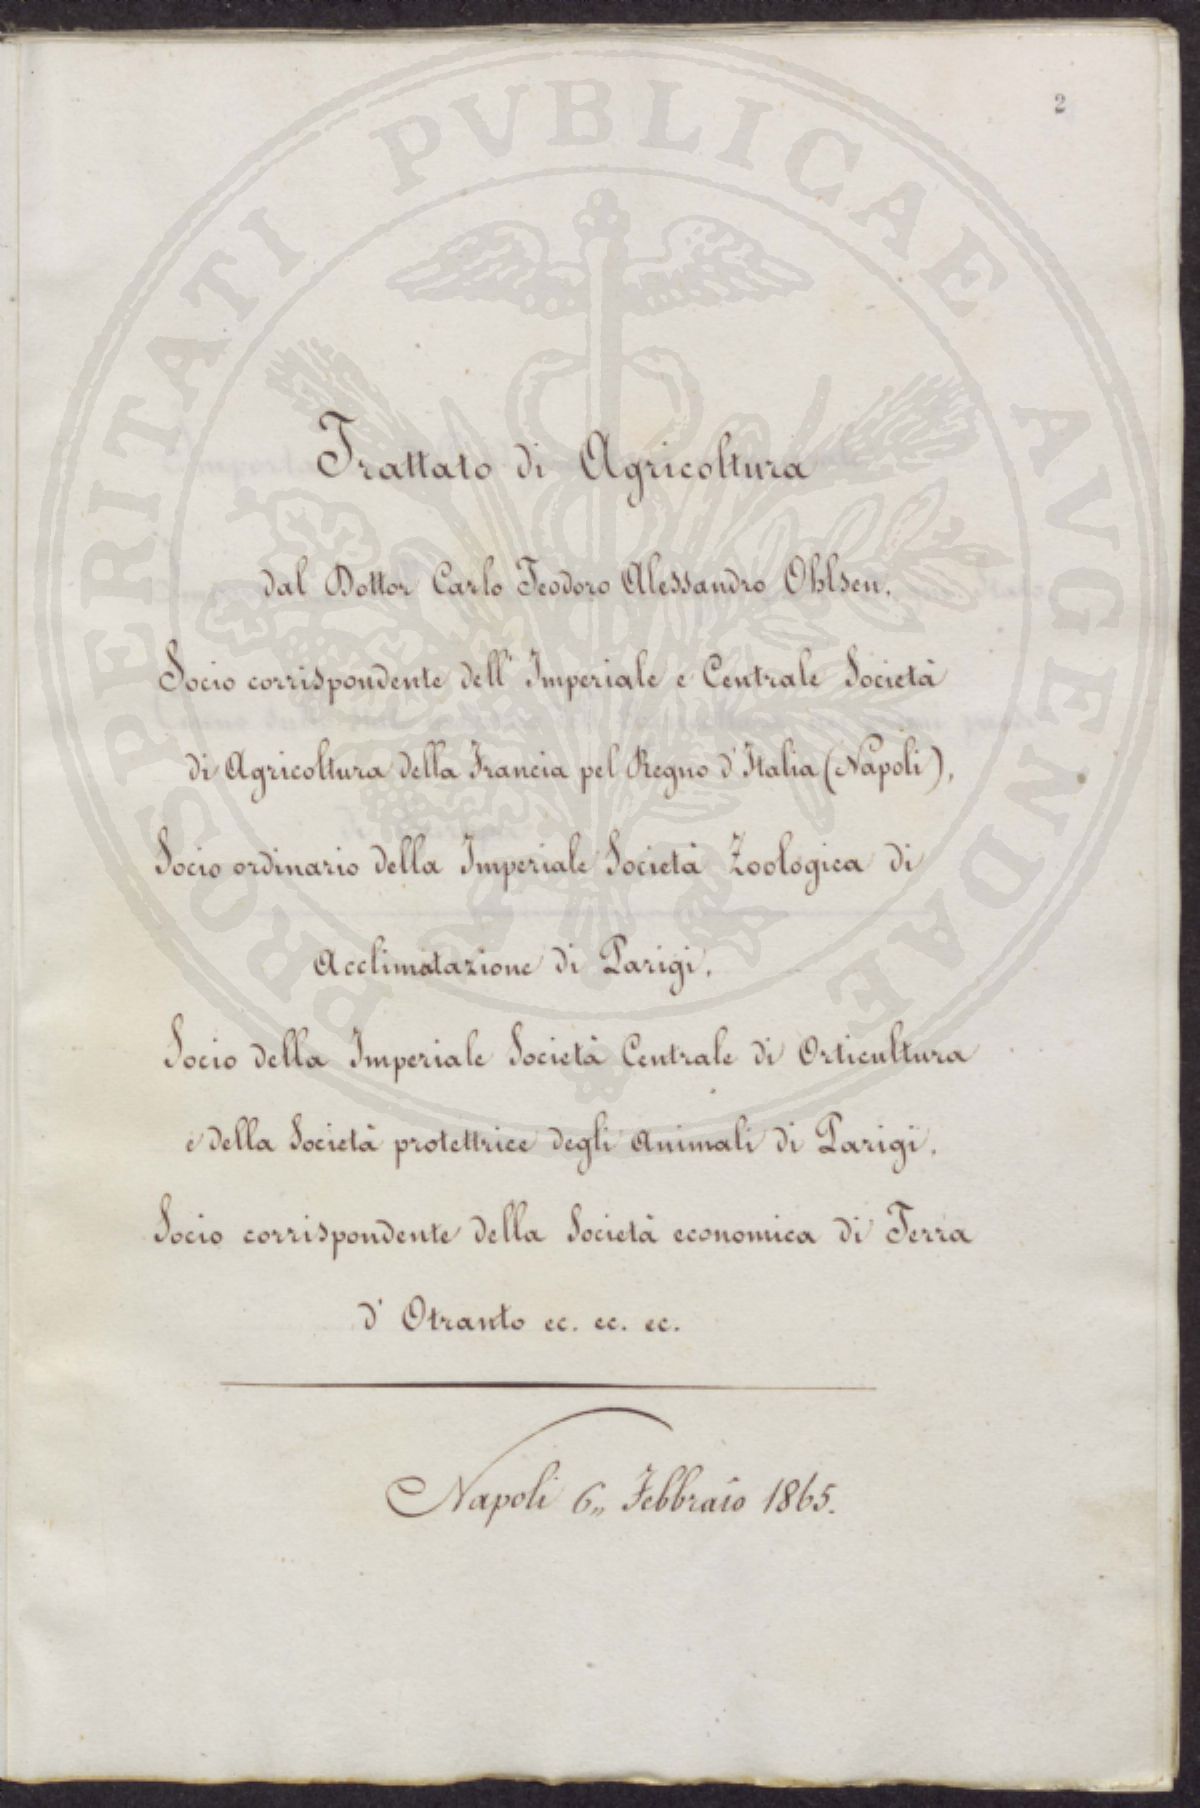 2
PROSPERITATI PVBLICAE AVGENDAE
Trattato di Agricoltura
dal Dottor Carlo Teodoro Alessandro Ohlsen.
Socio corrispondente dell' Imperiale e Centrale Società
di Agricoltura della Francia pel Regno d'Italia (Napoli),
Socio ordinario della Imperiale Società Zoologica di
Acclimatazione di Parigi.
Socio della Imperiale Società Centrale di Orticultura
e della Società protettrice degli Animali di Parigi.
Socio corrispondente della Società economica di Terra
d' Otranto ec. ec. ec.
Napoli 6,, Febbraio 1865.